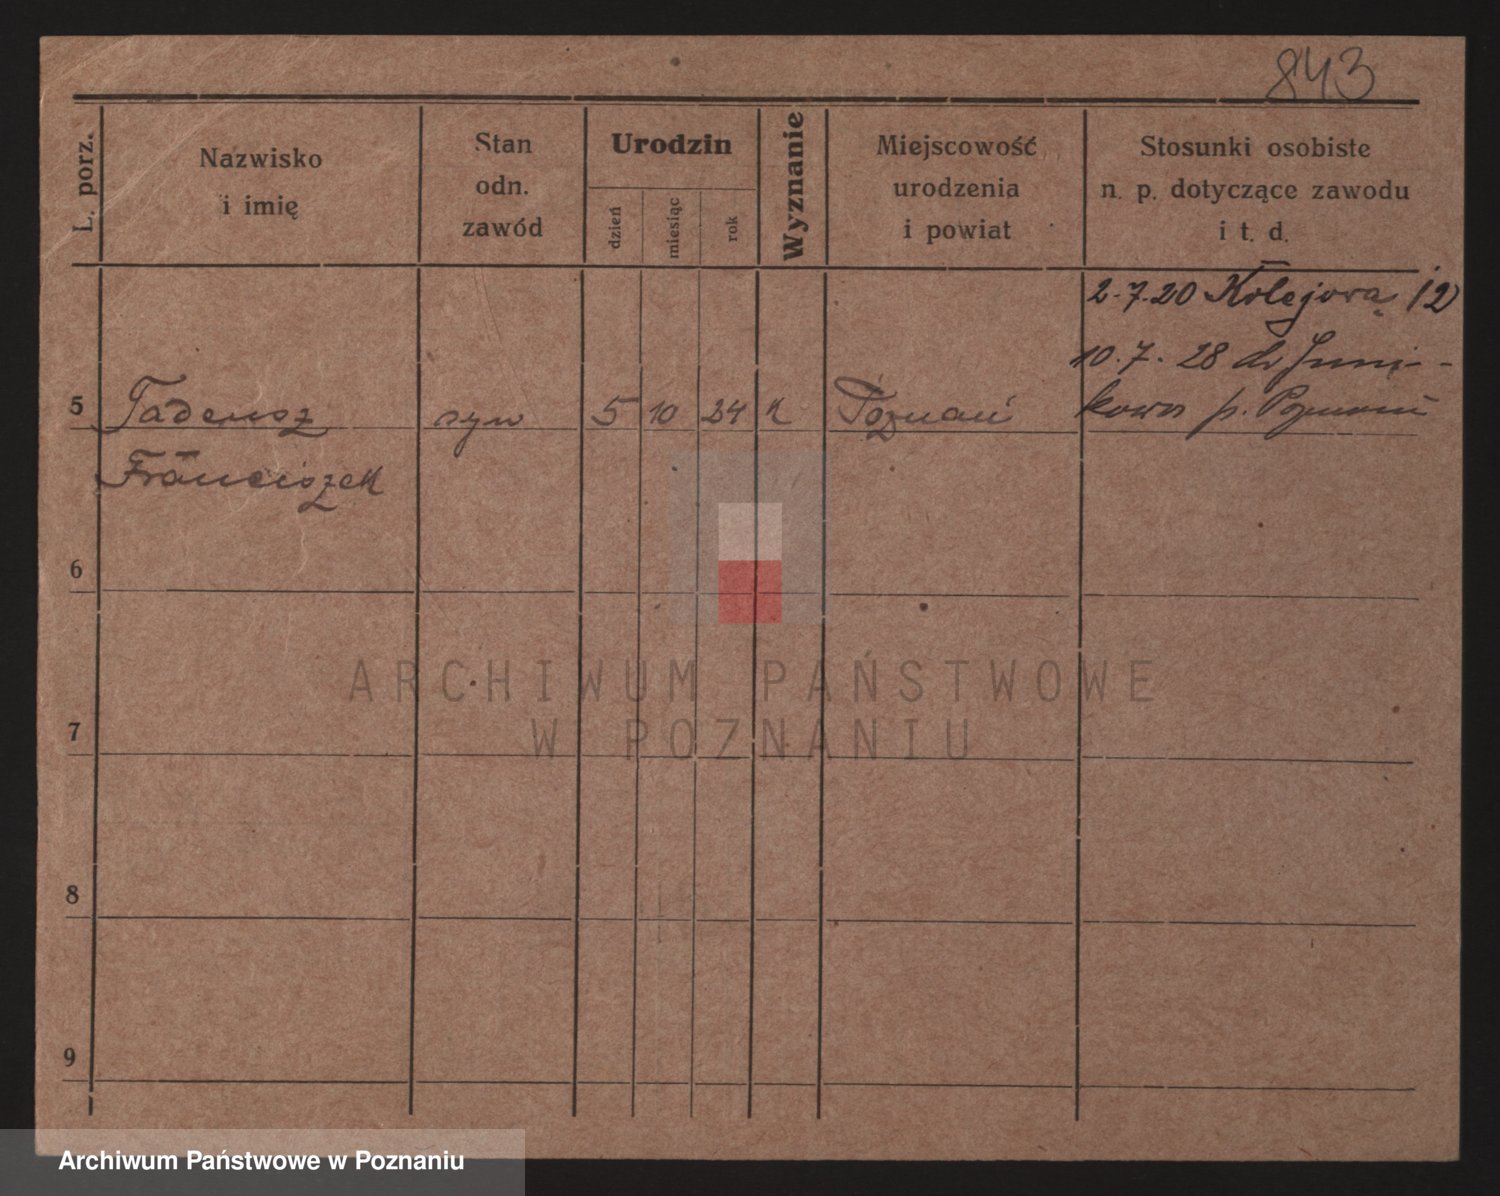 843
L. porz.
Nazwisko
i imię
Stan
odn.
zawód
Urodzin
dzień
miesiąc
rok
Wyznanie
Miejscowość
urodzenia
i powiat
Stosunki osobiste
n. p. dotyczące zawodu
i t. d.
2.7.20 Kolejowa 12
10.7.28 do Juni-
kowo p. Poznań
5 Tadeusz syn 5 10 24 k Poznań
Franciszek
6
7
8
9
ARCHIWUM PAŃSTWOWE
W POZNANIU
Archiwum Państwowe w Poznaniu